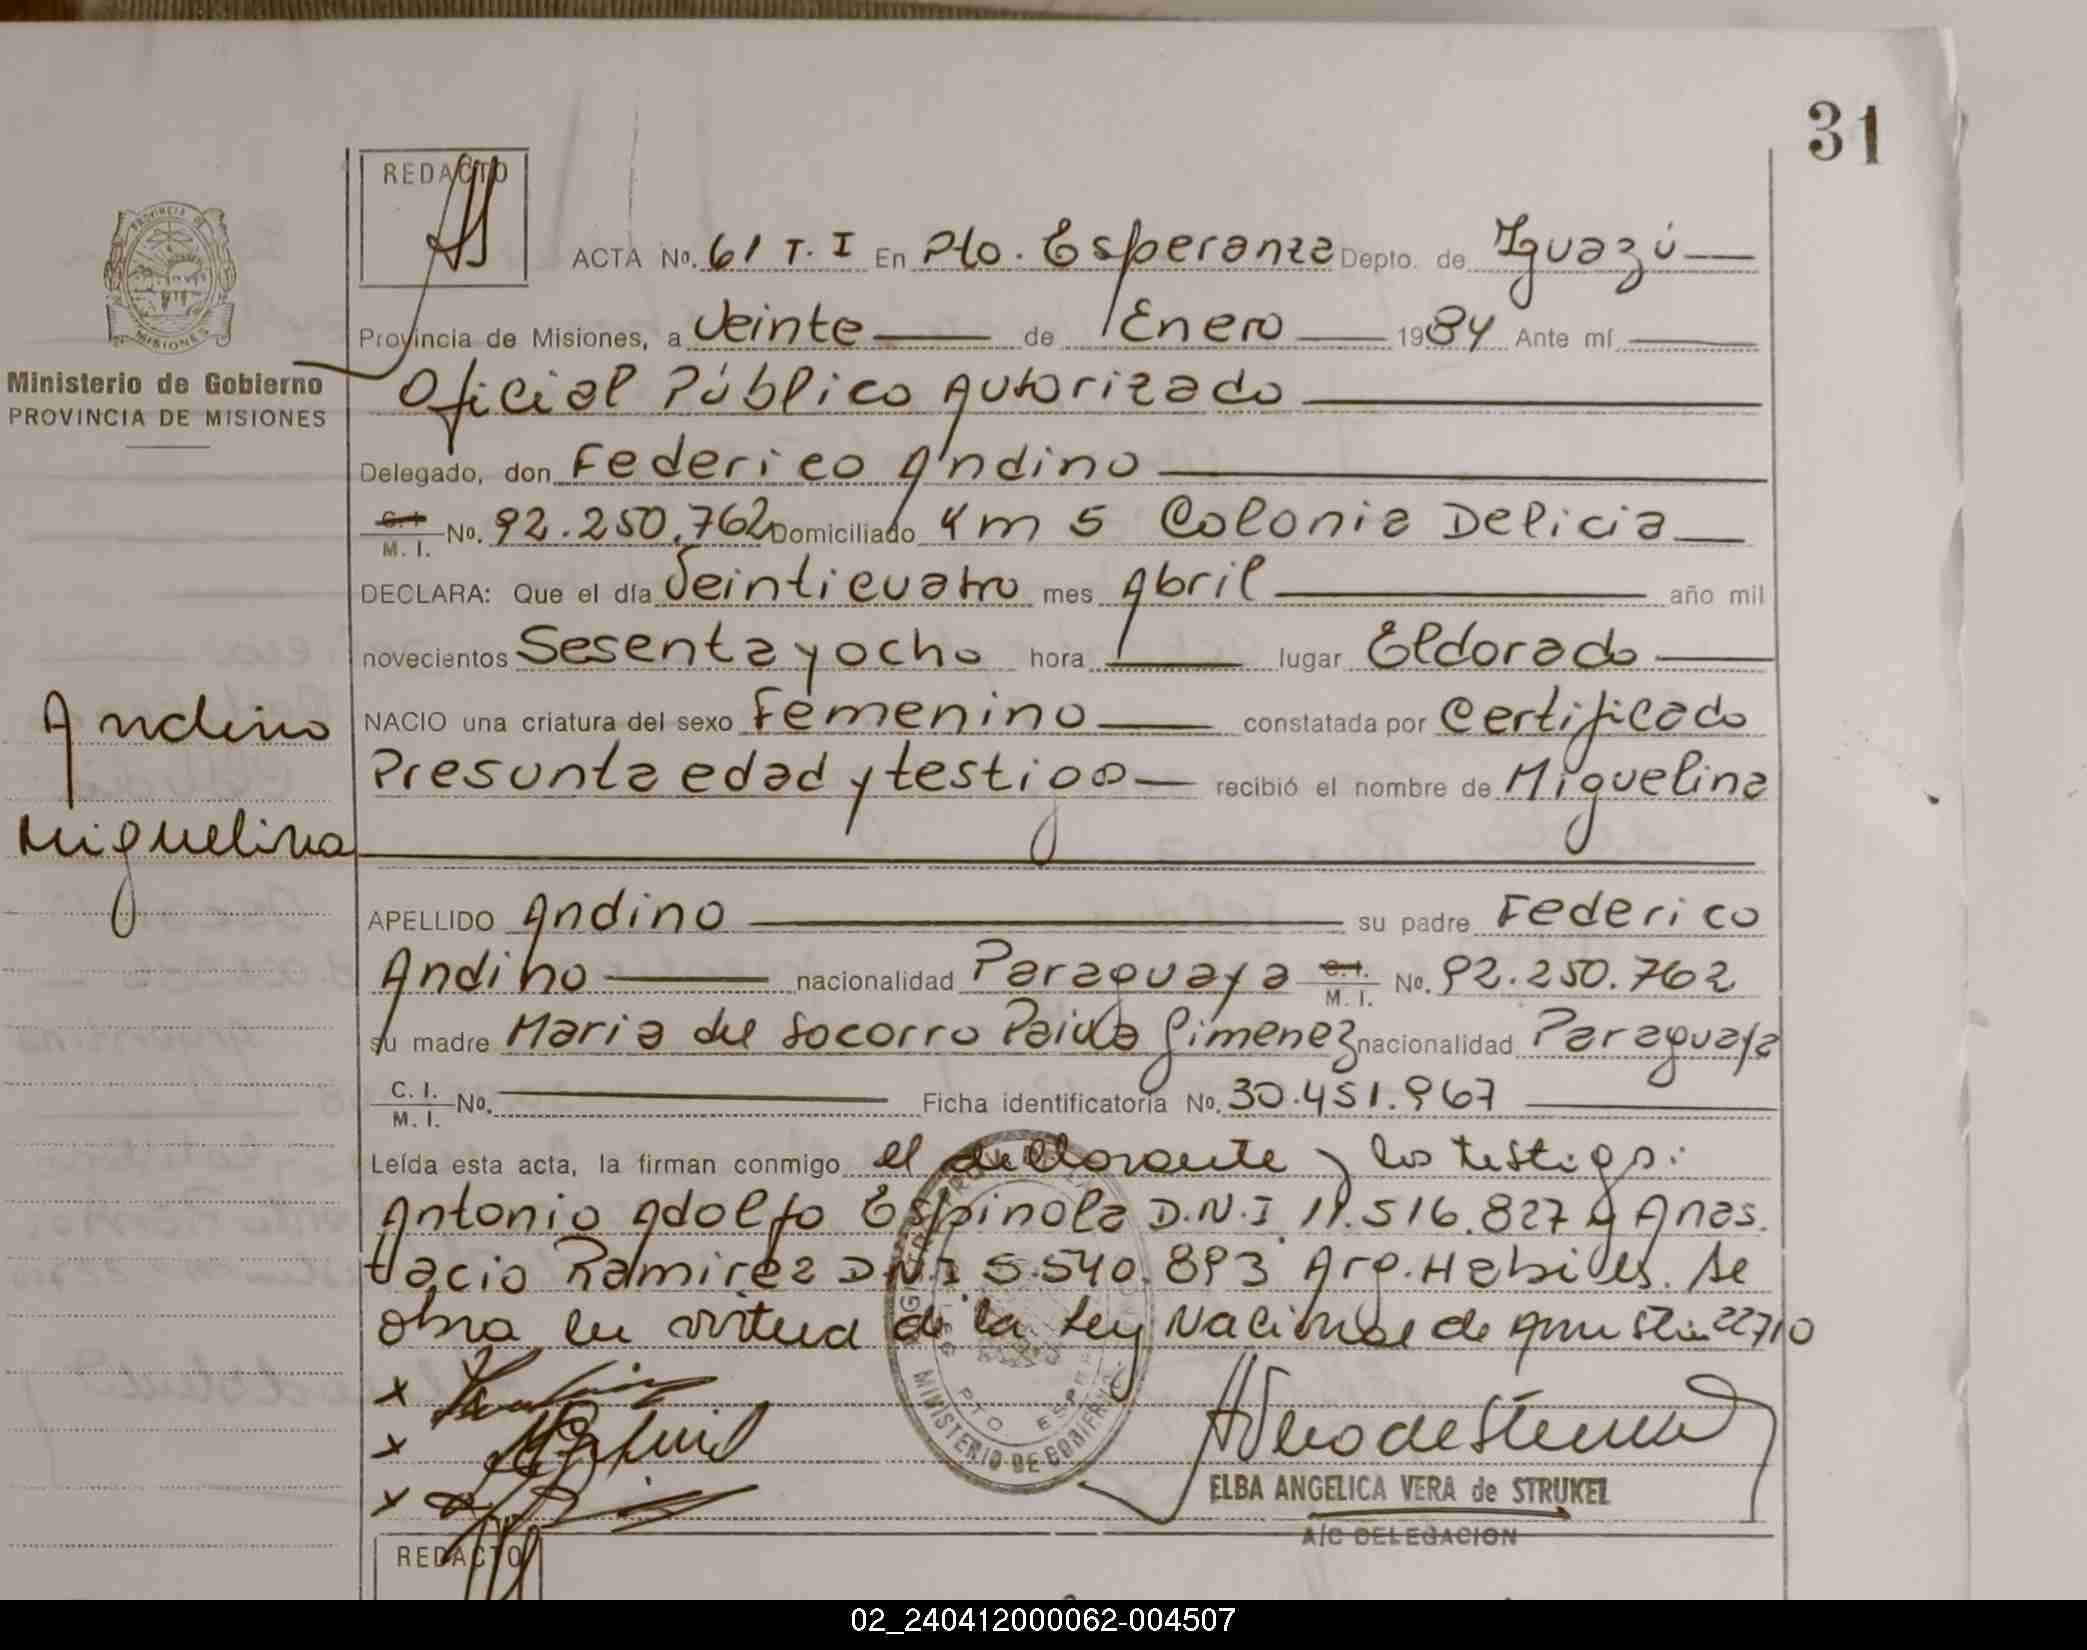 31
REDACTO
PROVINCIA DE
MISIONES
Ministerio de Gobierno
PROVINCIA DE MISIONES
ACTA No. 61 T. I En Pto. Esperanza Depto. de Iguazú
Provincia de Misiones, a Veinte de Enero 1984 Ante mí
Oficial Público Autorizado
Delegado, don Federico Andino
C.I. M. I. No. 92.250.762 Domiciliado Km 5 Colonia Delicia
DECLARA: Que el día Veinticuatro mes Abril año mil
novecientos Sesenta y ocho hora lugar Eldorado
NACIO una criatura del sexo Femenino constatada por Certificado
Presunta edad y testigos recibió el nombre de Miguelina
Andino
Miguelina
APELLIDO Andino su padre Federico
Andino nacionalidad Paraguaya C.I. M. I. No. 92.250.762
su madre Maria del Socorro Paiva Gimenez nacionalidad Paraguaya
C. I. M. I. No. Ficha identificatoria No. 30.451.967
Leída esta acta, la firman conmigo el declarante y los testigos:
Antonio Adolfo Espinola D.N.I 11.516.827 y Anas.
tacio Ramirez D.N.I 5.540.893 Arg. Habiles. Se
obra en virtud de la Ley Nacional de Amnistia 22710
x
x
x
PTO ESP
MINISTERIO DE GOBIERNO
ELBA ANGELICA VERA de STRUKEL
A/C DELEGACION
REDACTO
02_240412000062-004507